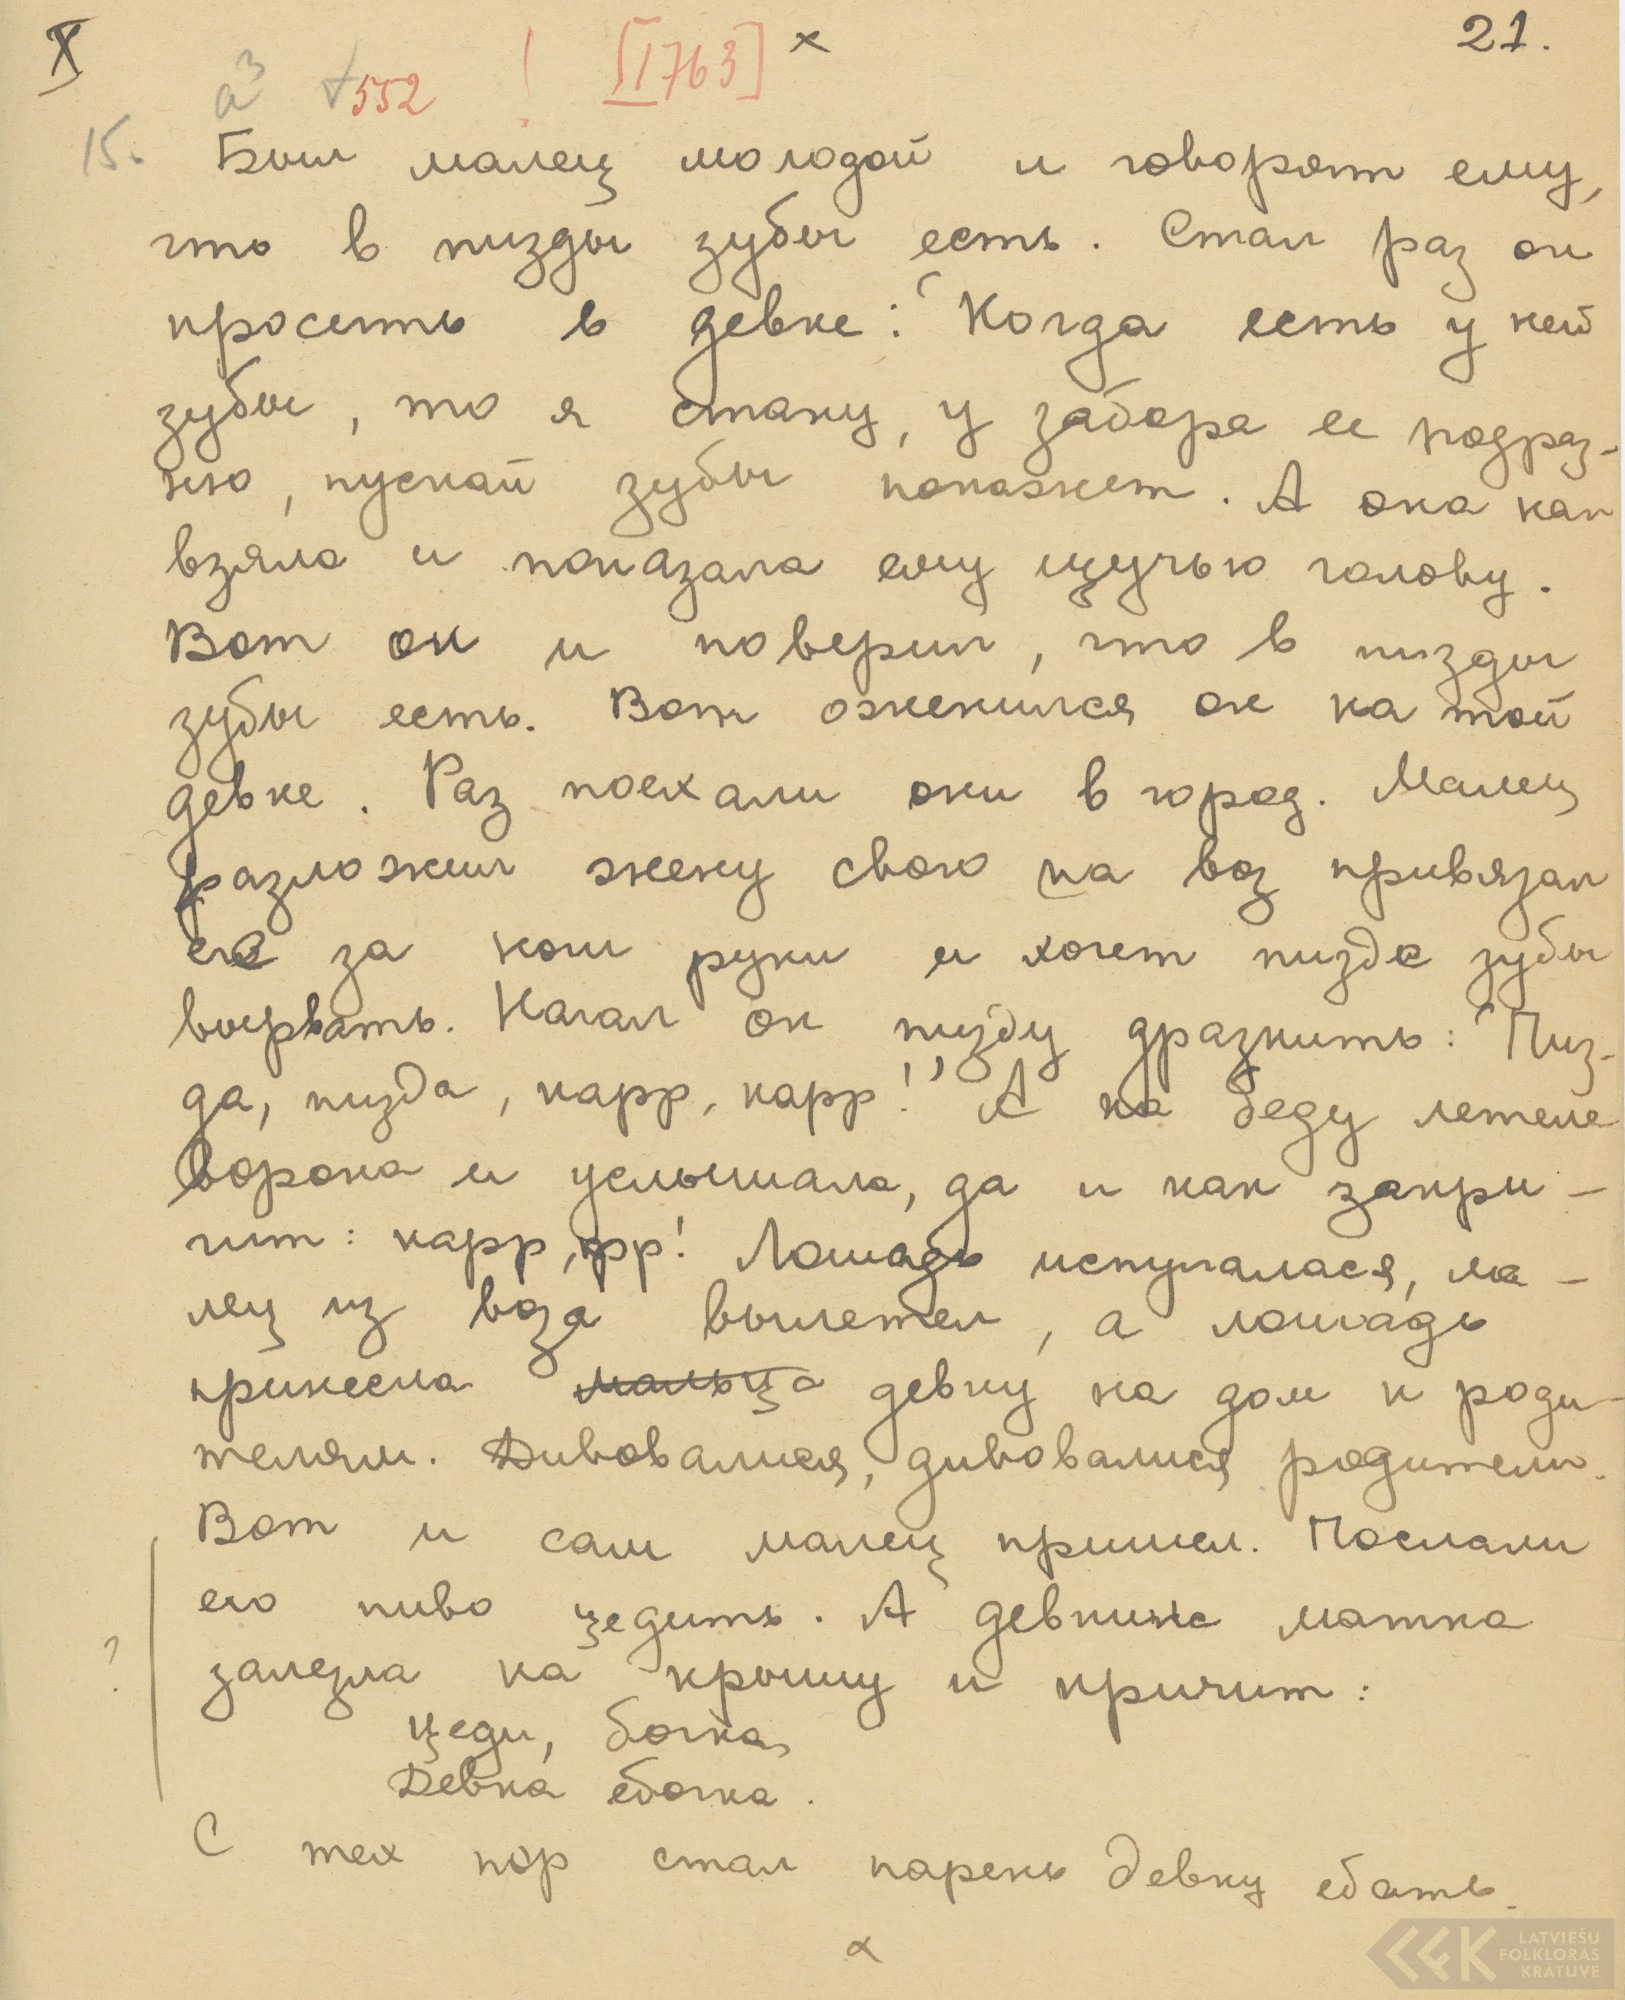 X
21.
a³ +552 ! [I 763] x
15. Был малец молодой и говорят ему,
что в пизды зубы есть. Стал раз он
просеть в девке: "Когда есть у ней
зубы, то я стану, у забора ее подраз-
ню, пускай зубы покажет. А она как
взяла и показала ему щучью голову.
Вот он и поверил, что в пизды
зубы есть. Вот оженился он на той
девке. Раз поехали они в город. Малец
разложил жену свою на воз привязал
ее за кош руки и хочет пизде зубы
вырвать. Начал он пизду дразнить: "Пиз-
да, пизда, карр, карр!" А на беду летела
ворона и услышала, да и как закри-
чит: карр, крр! Лошадь испугалася, ма-
лец из воза вылетел, а лошадь
принесла мальца девку на дом к роди-
телям. Дивовалися, дивовалися родители.
Вот и сам малец пришел. Послали
его пиво цедить. А девкина матка
залезла на крышу и кричит:
Цеди, бочка,
Девка ебочка.
?
С тех пор стал парень девку ебать.
x
LATVIEŠU
FOLKLORAS
KRĀTUVE